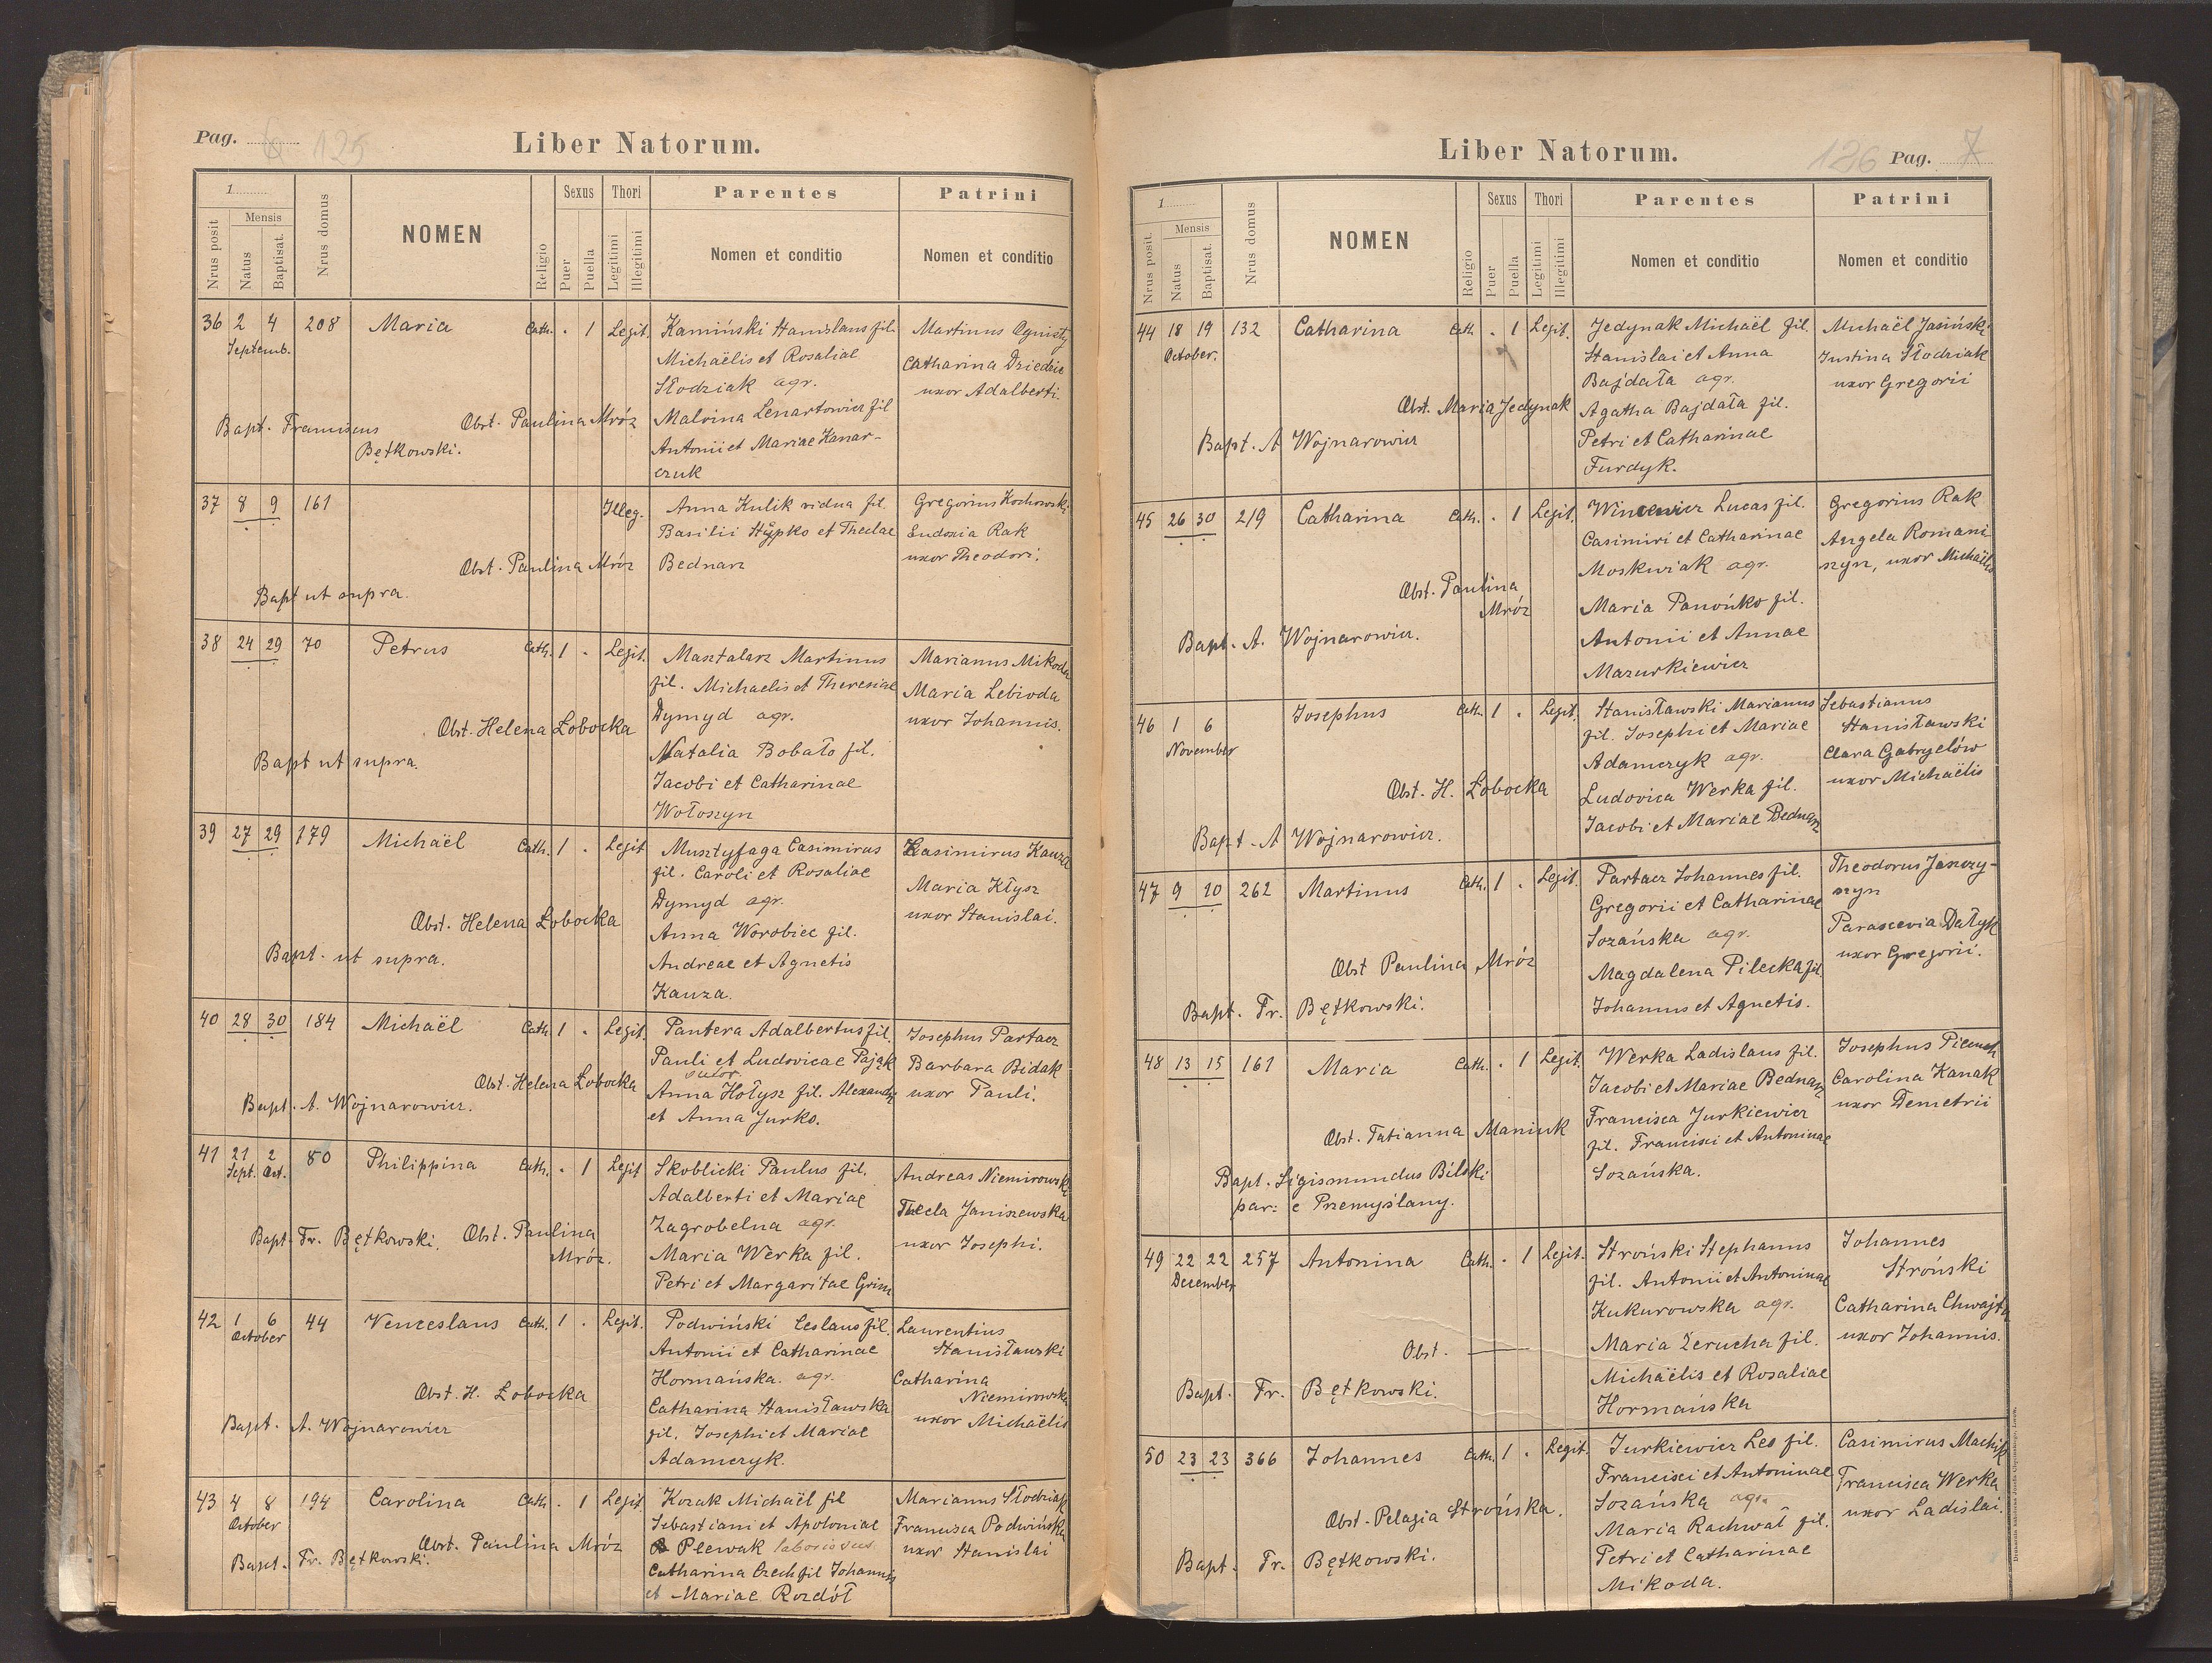 Pag. 6 125
Liber Natorum.
1
Mensis
Nrus posit
Natus
Baptisat.
Nrus domus
NOMEN
Religio
Sexus
Puer
Puella
Thori
Legitimi
Illegitimi
Parentes
Nomen et conditio
Patrini
Nomen et conditio
36 2 4 208 Maria Cath. . 1 Legit.
Septemb.
Kamiński Stanislaus fil.
Michaëlis et Rosaliae
Słodziak agr.
Malvina Lenartowicz fil
Antonii et Mariae Kanar-
czuk
Martinus Ognisty
Catharina Dziedzic
uxor Adalberti.
Obst. Paulina Mróz
Bapt. Franciscus
Bętkowski.
37 8 9 161 Illeg.
Anna Kulik vidua fil.
Basilii Hypko et Theclae
Bednarz
Gregorius Kochowski
Eudoxia Rak
uxor Theodori.
Obst. Paulina Mróz
Bapt ut supra.
38 24 29 70 Petrus Cath. 1 . Legit.
Masztalarz Martinus
fil. Michaelis et Theresiae
Dymyd agr.
Natalia Bobało fil.
Jacobi et Catharinae
Wołoszyn
Marianus Mikoda
Maria Lebioda
uxor Johannis.
Obst. Helena Łobocka
Bapt ut supra.
39 27 29 179 Michaël Cath. 1 . Legit
Musztyfaga Casimirus
fil. Caroli et Rosaliae
Dymyd agr.
Anna Worobiec fil.
Andreae et Agnetis
Kauza.
Casimirus Kauza
Maria Kłysz
uxor Stanislai.
Obst. Helena Łobocka
Bapt. ut supra.
40 28 30 184 Michaël Cath. 1 . Legit.
Pantera Adalbertus fil.
Pauli et Ludovicae Pająk
sutor
Anna Hołysz fil. Alexandri
et Anna Jurko.
Josephus Partacz
Barbara Bidak
uxor Pauli.
Obst. Helena Łobocka
Bapt. A. Wojnarowicz.
41 21 2 80 Philippina Cath. . 1 Legit
Sept. Oct.
Skoblicki Paulus fil.
Adalberti et Mariae
Zagrobelna agr.
Maria Werka fil.
Petri et Margaritae Grim
Andreas Niemirowski
Thecla Janiszewska
uxor Josephi.
Bapt. Fr. Bętkowski. Obst. Paulina
Mróz.
42 1 6 44 Venceslaus Cath. 1 . Legit.
October
Podwiński Ceslaus fil.
Antonii et Catharinae
Hormańska. agr.
Catharina Stanisławska
fil. Josephi et Mariae
Adamczyk.
Laurentius
Stanisławski
Catharina
Niemirowska
uxor Michaëlis
Obst. H. Łobocka
Bapt. A. Wojnarowicz
43 4 8 194 Carolina Cath. . 1 Legit.
October
Kozak Michaël fil
Sebastiani et Apoloniae
Plewak laboriosus
Catharina Czech fil Johannis
et Mariae Rozdół
Marianus Słodziak
Francisca Podwińska
uxor Stanislai
Obst. Paulina Mróz
Bapt. Fr. Bętkowski.
Liber Natorum.
126 Pag. 7
1
Mensis
Nrus posit.
Natus
Baptisat.
Nrus domus
NOMEN
Religio
Sexus
Puer
Puella
Thori
Legitimi
Illegitimi
Parentes
Nomen et conditio
Patrini
Nomen et conditio
44 18 19 132 Catharina Cath . 1 Legit.
October.
Jedynak Michaël fil.
Stanislai et Anna
Bajdała agr.
Agatha Bajdała fil.
Petri et Catharinae
Furdyk.
Michaël Jasiński
Justina Słodziak
uxor Gregorii
Obst. Maria Jedynak
Bapt. A Wojnarowicz
45 26 30 219 Catharina Cath. . 1 Legit.
Wincewicz Lucas fil.
Casimiri et Catharinae
Moskwiak agr.
Maria Panońko fil.
Antonii et Annae
Mazurkiewicz
Gregorius Rak
Angela Romani-
szyn, uxor Michaëlis
Obst. Paulina
Mróz
Bapt. A. Wojnarowicz.
46 1 6 Josephus Cath. 1 . Legit.
November
Stanisławski Marianus
fil. Josephi et Mariae
Adamczyk agr.
Ludovica Werka fil.
Jacobi et Mariae Bednarz
Sebastianus
Stanisławski
Clara Gabryelów
uxor Michaëlis
Obst. H. Łobocka
Bapt. A Wojnarowicz.
47 9 10 262 Martinus Cath. 1 . Legit.
Partacz Johannes fil.
Gregorii et Catharinae
Sozańska agr.
Magdalena Pilecka fil.
Johannis et Agnetis.
Theodorus Janczy-
szyn
Parascevia Dałyk
uxor Gregorii.
Obst Paulina Mróz
Bapt. Fr. Bętkowski.
48 13 15 161 Maria Cath. . 1 Legit.
Werka Ladislaus fil.
Jacobi et Mariae Bednarz
Francisca Jurkiewicz
fil. Francisci et Antoninae
Sozańska.
Josephus Piemch
Carolina Kanak
uxor Demetrii
Obst. Tatianna Maniuk
Bapt. Sigismundus Bilski
par: e Przemyślany.
49 22 22 257 Antonina Cath. . 1 Legit.
December
Stroński Stephanus
fil. Antonii et Antoninae
Kukurowska agr.
Maria Zerucha fil.
Michaëlis et Rosaliae
Hormańska
Johannes
Stroński
Catharina Chwajta
uxor Johannis.
Obst. —
Bapt. Fr. Bętkowski.
50 23 23 366 Johannes Cath. 1 . Legit.
Jurkiewicz Leo fil.
Francisci et Antoninae
Sozańska agr.
Maria Rachwał fil.
Petri et Catharinae
Mikoda.
Casimirus Machik
Francisca Werka
uxor Ladislai.
Obst. Pelagia Strońska.
Bapt. Fr. Bętkowski.